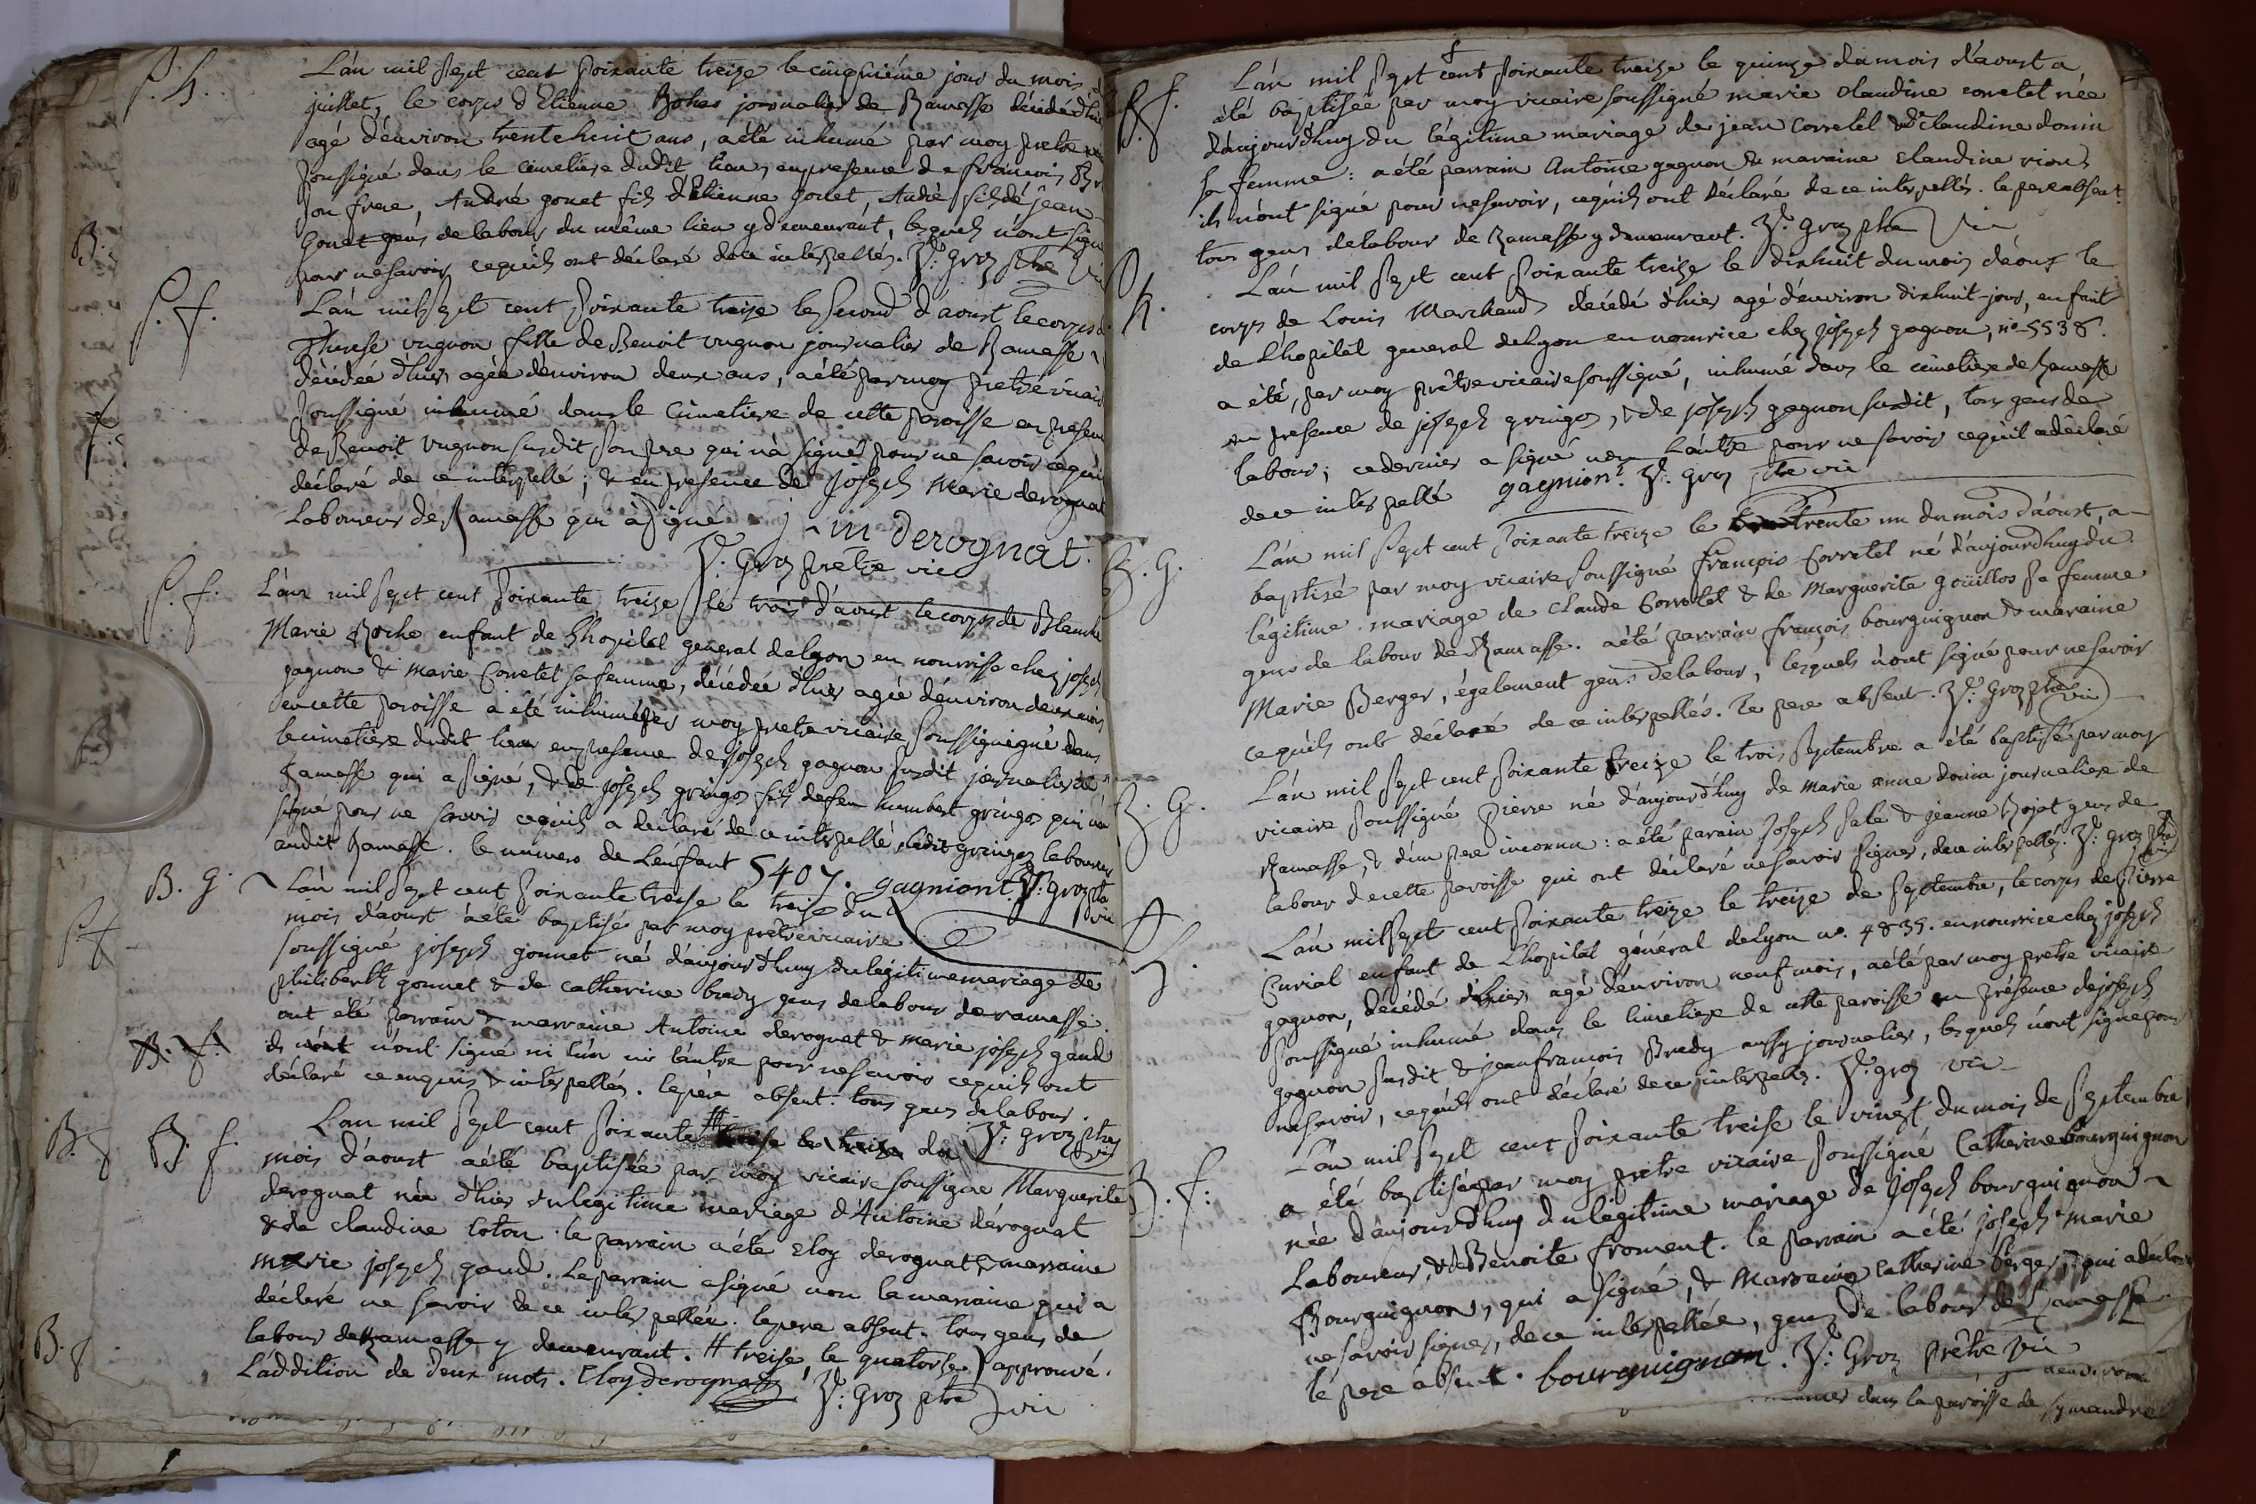 S. h.
L'an mil sept cent soixante treize le cinquième jour du mois de
juillet, le corps d'Etienne journalier de Ramasse décédé d'hier
agé d'environ trente huit ans, a été inhumé par moy pretre
soussigné dans le cimetiere dudit lieu, en presence de François
son frere, André gonet fils d'Etienne gonet, André fils de jean
Gonet gens de labour du même lieu y demeurant, lesquels n'ont signé
pour ne savoir ce qu'ils ont déclaré de ce intérpellés. Groz ptre vic
S. f.
L'an mil sept cent soixante treize le second d'aoust le corps de
Therese vugnon fille de Benoit vugnon journalier de Ramasse
décédée d'hier agée d'environ deux ans, a été par moy pretre vicaire
soussigné inhumé dans le cimetiere de cette paroisse en presence
de Benoit vugnon susdit son pere qui n'a signé pour ne savoir ce qu'il
déclaré de ce interpellé; & en presence de Joseph Marie derognat
Laboureur de Ramasse qui à signé j m derognat.
Groz pretre vic
S. f.
L'an mil sept cent soixante treize le trois d'aoust le corps de Blanche
Marie Roche enfant de L'hopital général de Lyon en nourrisse chez joseph
gagnon & marie Corretel sa femme, décédée d'hier agée d'environ deux mois
en cette paroisse a été inhumé par moy pretre vicaire soussignigné dans
le cimetiere dudit lieu en presence de joseph gagnon susdit journalier de
Ramasse qui a signé, & de joseph gringoz fils de feu humbert gringoz qui n'a
signé pour ne savoir ce qu'il a déclaré de ce interpellé ledit gringoz laboureur
audit Ramasse. le numero de L'enfant 5407. gagniont. Groz ptre vic
B. g.
L'an mil sept cent soixante treise le treise du
mois d'aoust a été baptisé par moy pretre vicaire
soussigné joseph gonnet né d'aujourd'huy du légitime mariage de
philibertt gonnet & de catherine brédy gens de labour de ramasse.
ont été parrain & marraine Antoine derognat & marie joseph gaud
ils n'ont n'ont signé ni l'un ni l'autre pour ne savoir ce qu'ils ont
déclaré ce enquis & interpellés. le pere absent. tous gens de labour.
Groz ptre vic
B. f.
L'an mil sept cent soixante # treise le treize du
mois d'aoust a été baptisée par moy vicaire soussigné Marguerite
derognat née d'hier du légitime mariage d'Antoine dérognat
& de claudine Coton. le parrain a été Eloy derognat & marraine
marie joseph gaud. Le parrain a signé non la marraine qui a
déclaré ne savoir de ce interpellée. le pere absent. tous gens de
labour de Ramasse y demeurant. # treise, le quatorse. approuvé.
L'addition de deux mots. Eloy derognat Groz ptre vic
B. f.
L'an mil sept cent soixante treize le quinze du mois d'aoust a
été baptisée par moy vicaire soussigné marie claudine corretel née
d'aujourd'huy du légitime mariage de jean Corretel & de claudine donin
sa femme: a été parrain Antoine gagnon & maraine claudine rion
ils n'ont signé pour ne savoir, ce qu'ils ont déclaré de ce interpellés. le pere absent.
tous gens de labour de Ramasse y demeurant. Groz ptre vic
S. h.
L'an mil sept cent soixante treize le dixhuit du mois d'aoust le
corps de Louis Marchand décédé d'hier agé d'environ dixhuit jours, enfant
de L'hopital general de Lyon en nourrice chez joseph gagnon, n° 5538.
a été, par moy prêtre vicaire soussigné, inhumé dans le cimetiere de Ramasse
en presence de joseph gringoz, & de joseph gagnon susdit, tous gens de
labour; ce dernier a signé non L'autre pour ne savoir ce qu'il a déclaré
de ce interpellé gagnion. Groz ptre vic
B. G.
L'an mil sept cent soixante treize le trente un du mois d'aoust, a
baptisé par moy vicaire soussigné françois Corretel né d'aujourd'huy du
légitime mariage de claude Corretel & de Marguerite goüillos sa femme
gens de labour de Ramasse. a été parrain françois bourguignon & maraine
Marie Berger, également gens de labour, lesquels n'ont signé pour ne savoir
ce qu'ils ont déclaré de ce interpellés. Le pere absent. Groz ptre vic
B. G.
L'an mil sept cent soixante treize le trois septembre a été baptisé par moy
vicaire soussigné pierre né d'aujourd'huy de marie anne donin journaliere de
Ramasse, & d'un pere inconnu: a été parain joseph sale & jeanne Rojat gens de
labour de cette paroisse qui ont déclaré ne savoir signer, de ce interpellés. Groz ptre vic
S.
L'an mil sept cent soixante treize le treize de septembre, le corps de Pierre
Curial enfant de L'hopital général de Lyon n°. 4835. en nourrice chez joseph
gagnon, décédé d'hier, agé d'environ neuf mois, a été par moy pretre vicaire
soussigné inhumé dans le cimetiere de cette paroisse en présence de joseph
gagnon susdit & jean françois Bredy aussy journalier, lesquels n'ont signé pour
ne savoir, ce qu'ils ont déclaré de ce interpellés. Groz vic
B. f:
L'an mil sept cent soixante treise le vingt du mois de septembre
a été baptisée par moy pretre vicaire soussigné Catherine bourguignon
née d'aujourd'huy du légitime mariage de joseph bourguignon
Laboureur, & de Benoite froment. le parrain a été joseph marie
Bourguignon, qui a signé, & marraine Catherine berger, qui a déclaré
ne savoir signer, de ce interpellée, gens de labour de Ramasse
le pere absent. bourguignon. Groz prêtre vic
d'environ
dans la paroisse de symandre